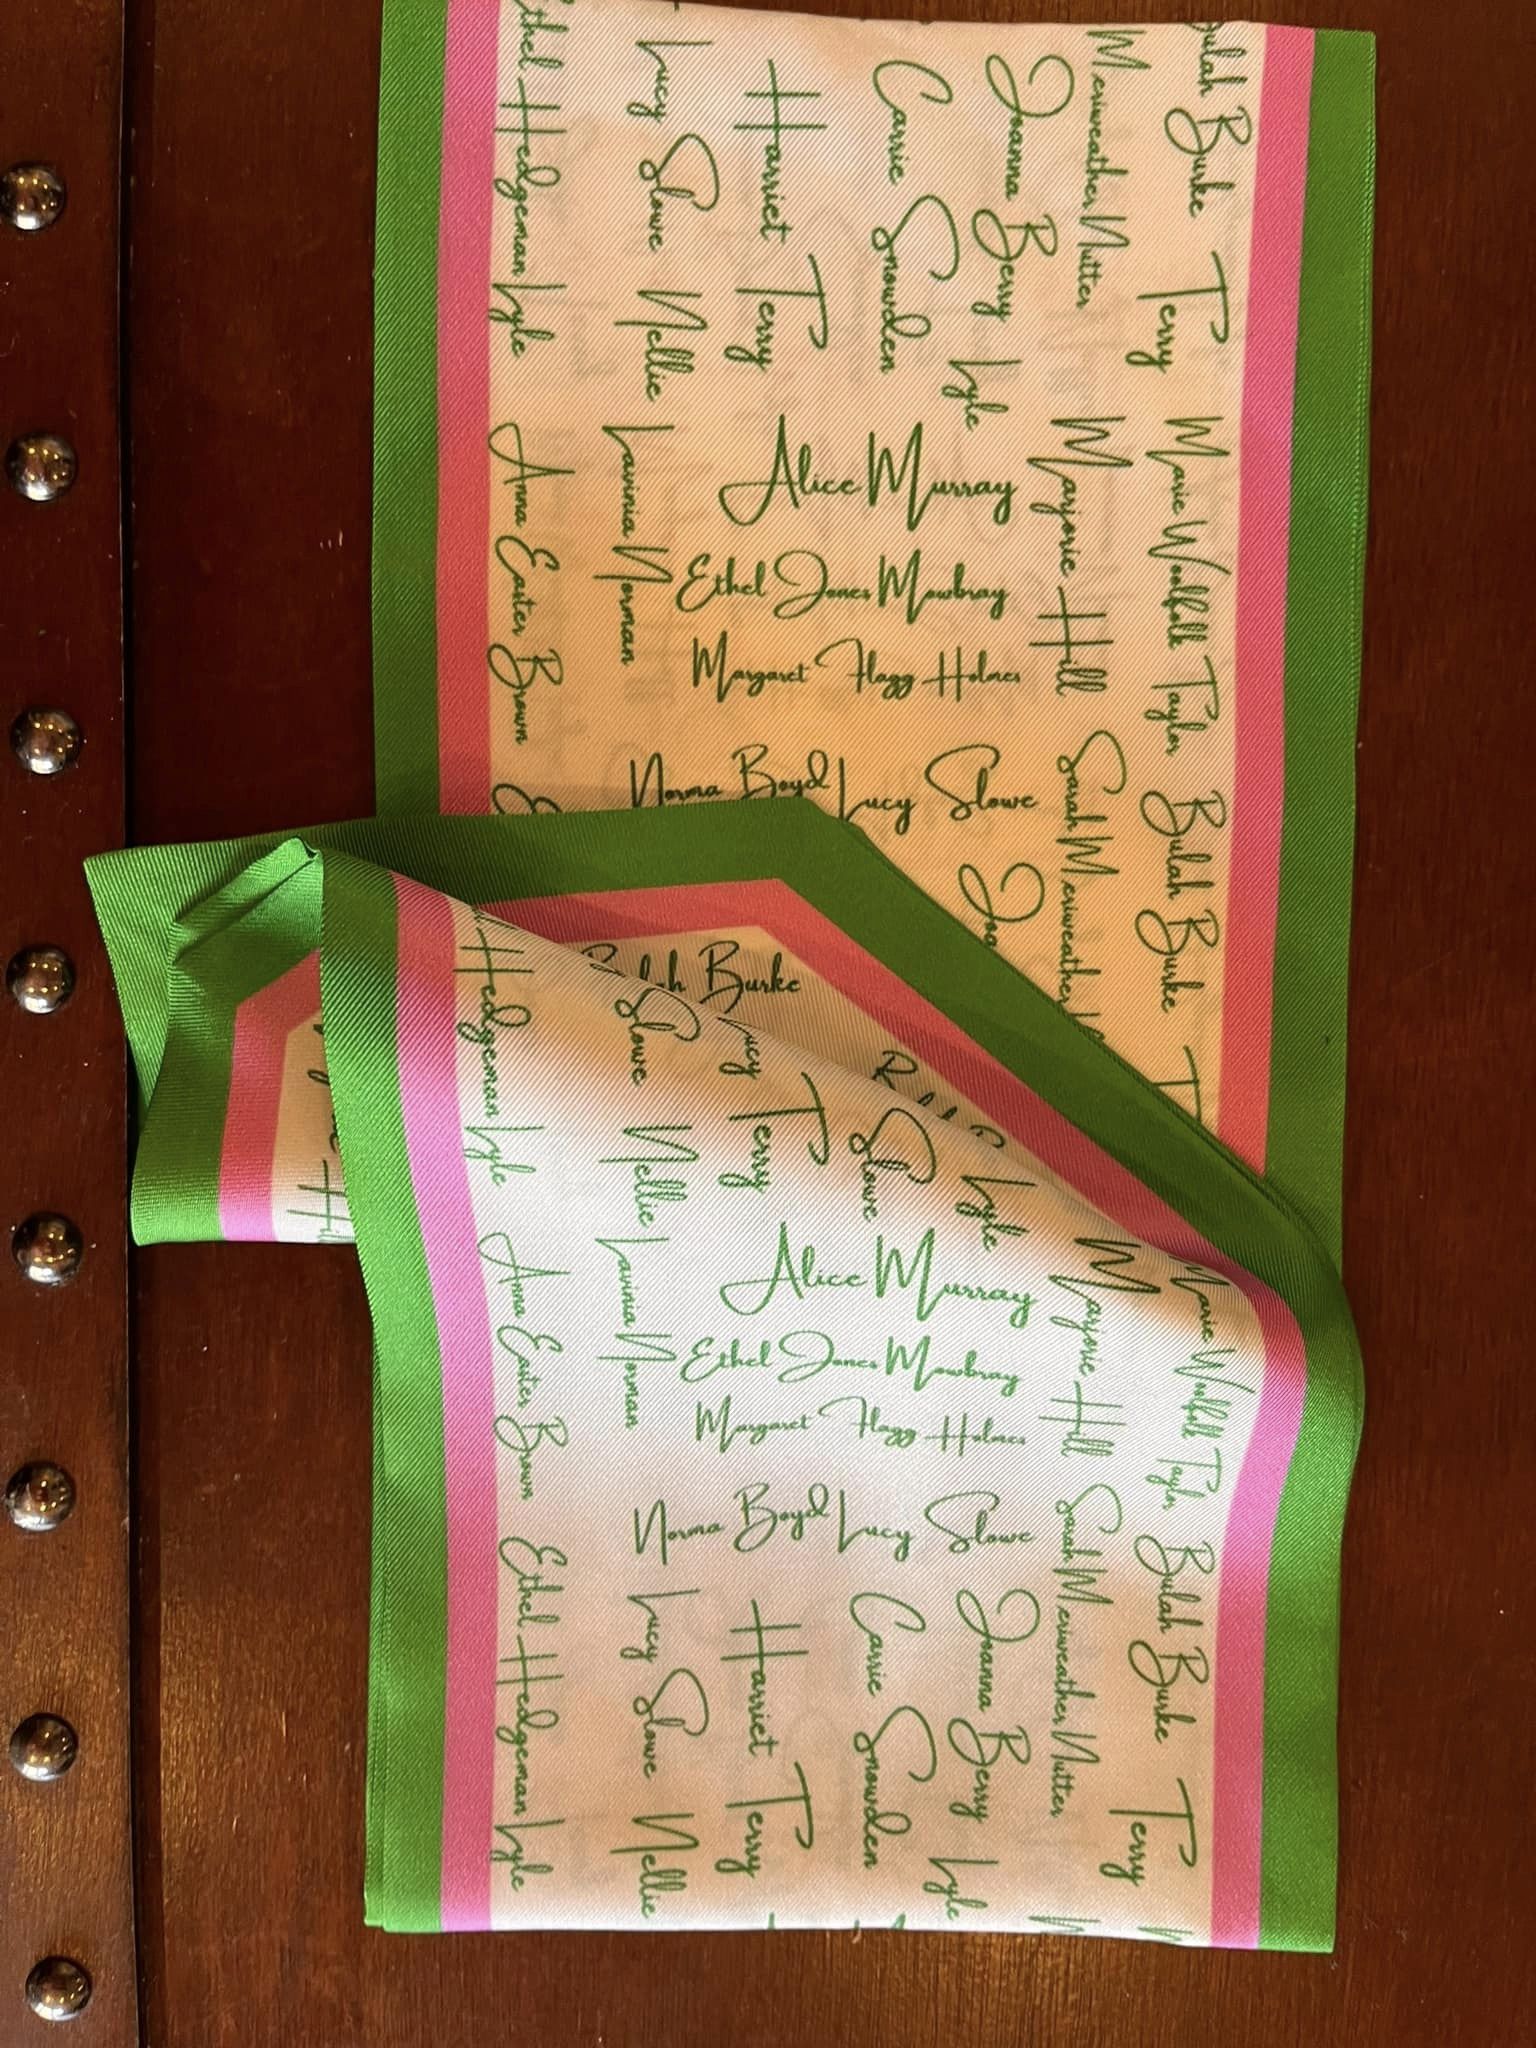 Ethel Hedgeman Lyle
Lucy Slowe
Nellie
Harriet Terry
Carrie Snowden
Joanna Berry Lyle
Meriweather Nutter
Bulah Burke
Terry
Anna Easter Brown
Lavinia Norman
Alice Murray
Ethel Jones Mowbray
Margaret Flagg Holmes
Marjorie Hill
Marie Woolfolk Taylor
Norma Boyd
Lucy Slowe
Sarah Meriweather
Bulah Burke
Burke
Hedgeman Lyle
Slowe
Nellie
Terry
Slowe
Lyle
Anna Easter Brown
Lavinia Norman
Alice Murray
Ethel Jones Mowbray
Margaret Flagg Holmes
Marjorie Hill
Marie Woolfolk Taylor
Norma Boyd
Lucy Slowe
Ethel Hedgeman Lyle
Lucy Slowe
Nellie
Harriet Terry
Carrie Snowden
Joanna Berry Lyle
Sarah Meriweather Nutter
Bulah Burke
Terry